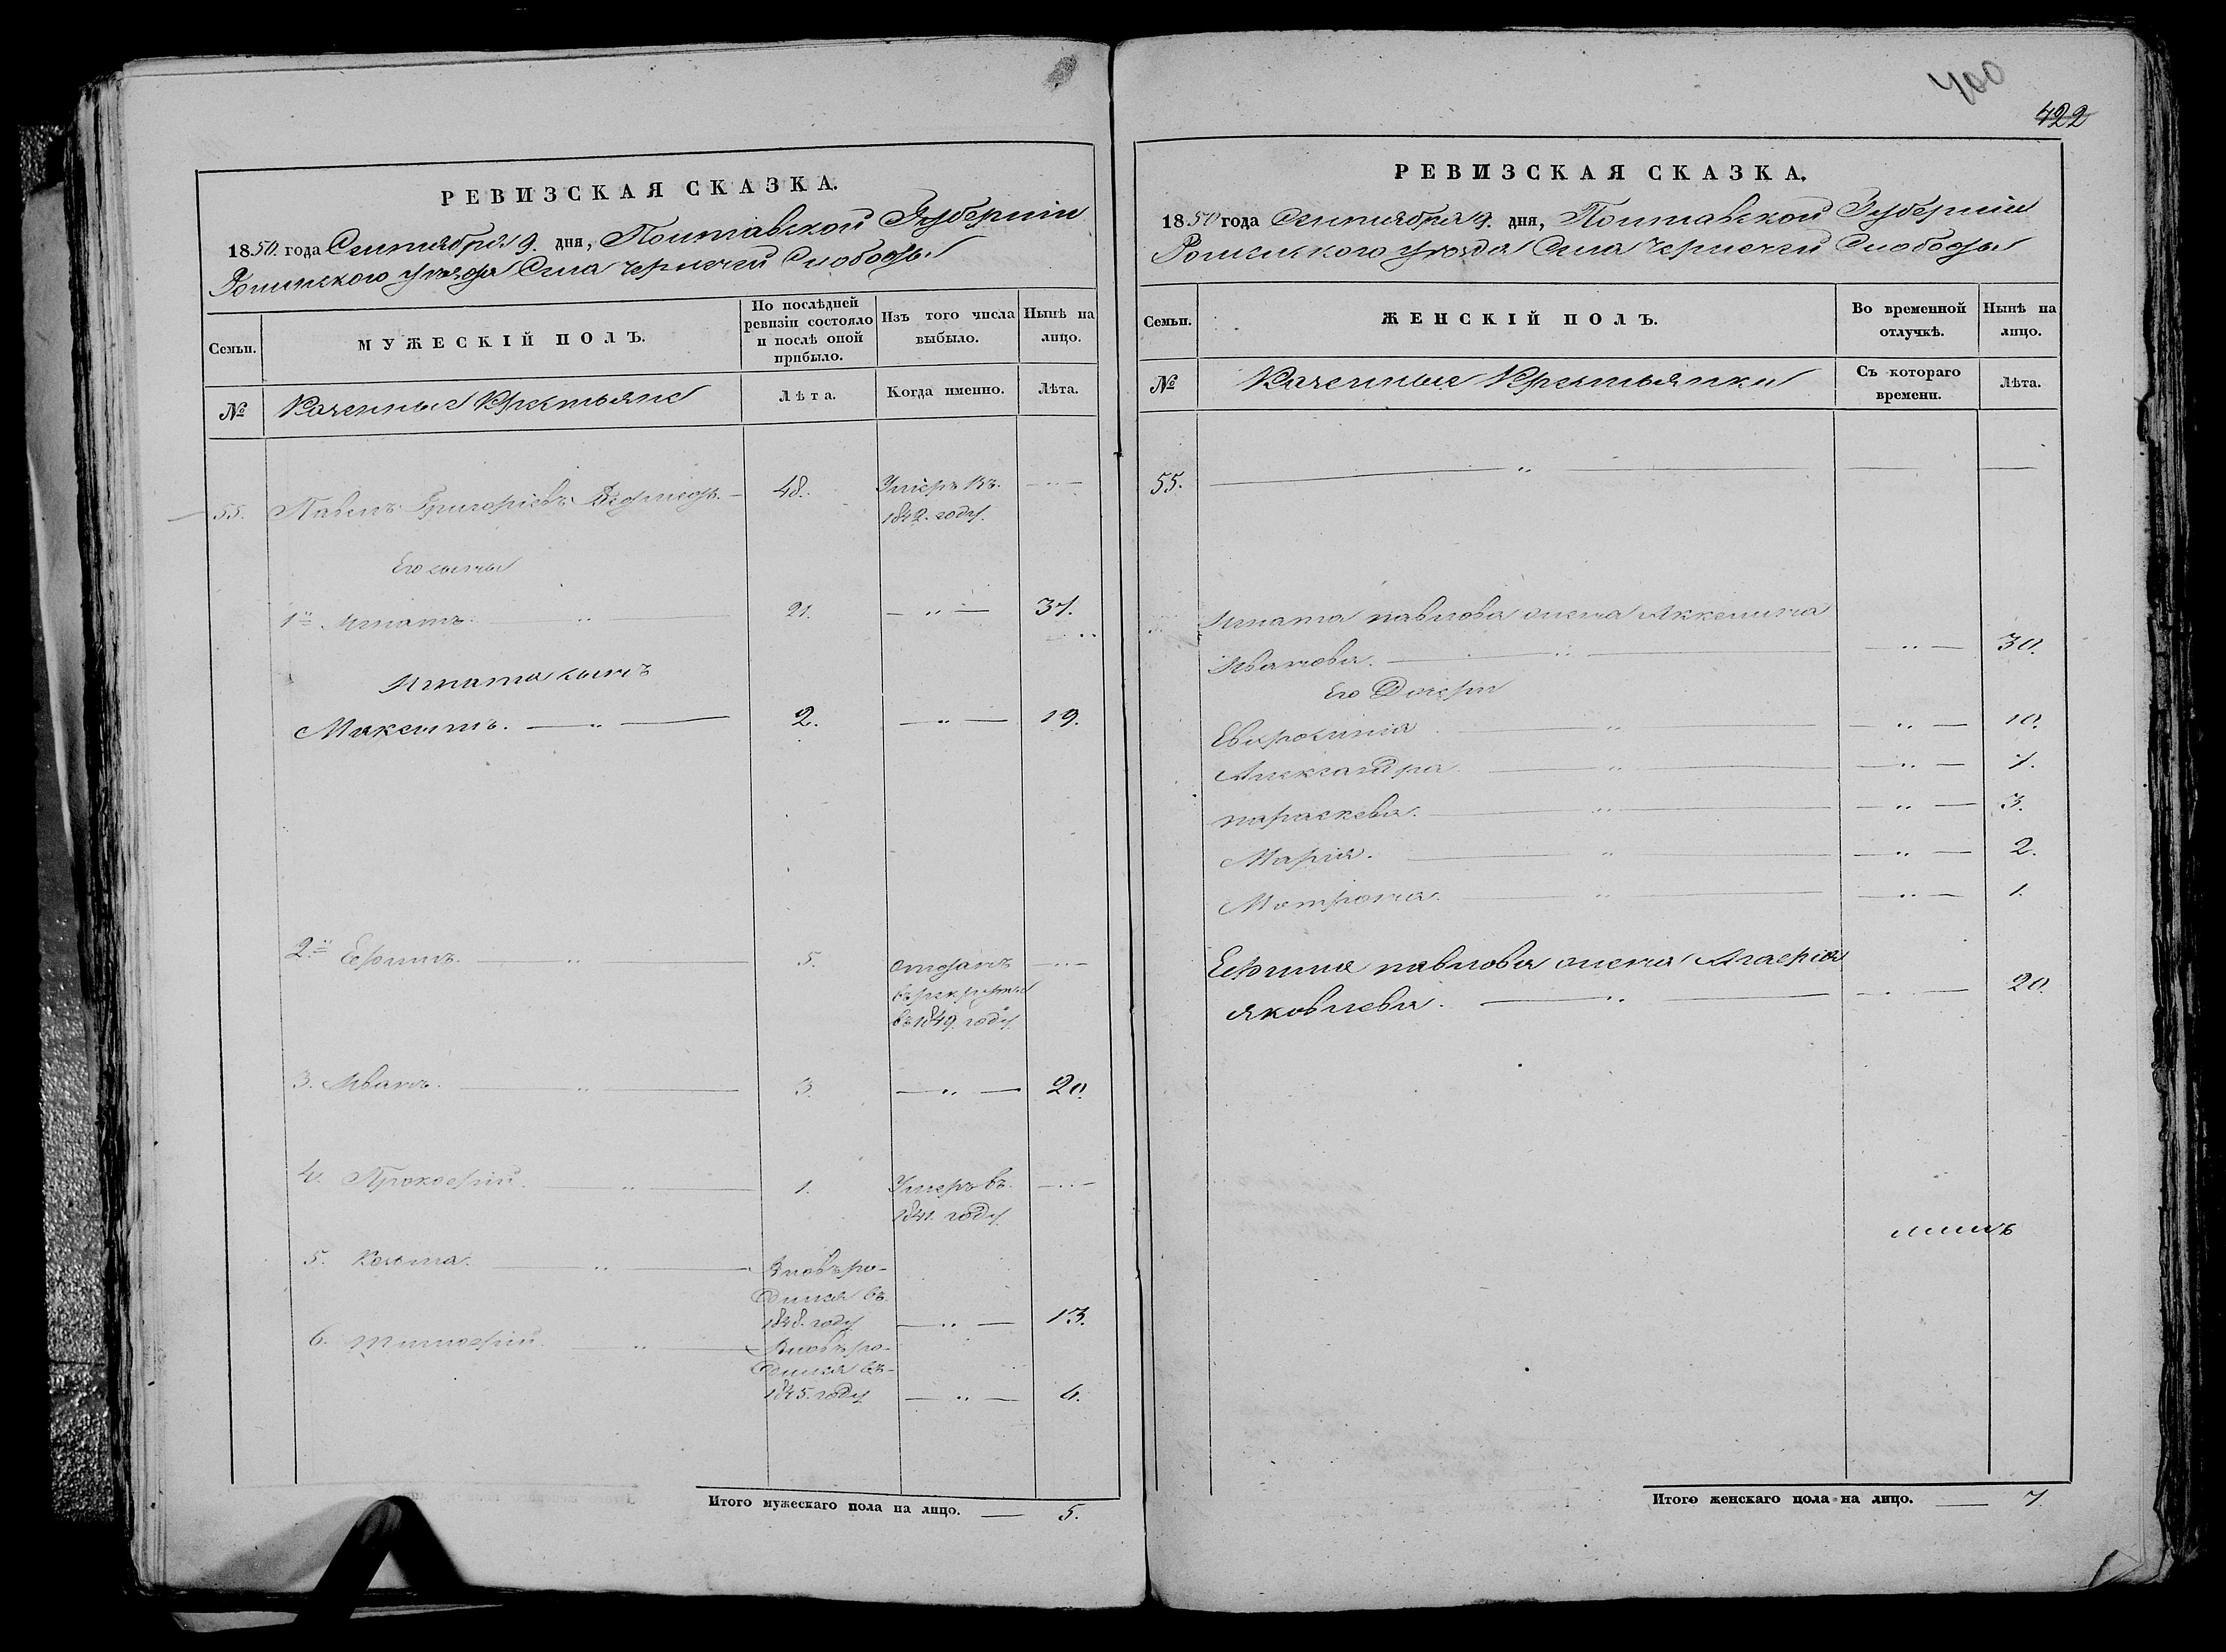 РЕВИЗСКАЯ СКАЗКА.
1850. года Сентября 9. дня, Полтавской Губернии
Роменского уезда Села Чернечей Слободы
Семьи.
МУЖЕСКІЙ ПОЛЪ.
По послѣдней ревизіи состояло и послѣ оной прибыло.
Изъ того числа выбыло.
Нынѣ на лицо.
№
Казенные Крестьяне
Лѣта.
Когда именно.
Лѣта.
55. Павелъ Григоріевъ 48. Умеръ въ
1842. году.
Его сыны
1й Игнатъ. 21. 37.
Игната сынъ
Максимъ. 2. 19.
2й Ефимъ. 5. отданъ
въ рекруты
въ 1849. году.
3. Иванъ. 3. 20.
4. Прокофій. 1. Умеръ въ
1841. году
5. Козьма. Вновь ро-
дился въ
году 13.
6. Тимофій. Вновь ро-
дился въ
1845. году 4.
Итого мужескаго пола на лицо. 5.
400
422
РЕВИЗСКАЯ СКАЗКА.
1850 года Сентября 9. дня, Полтавской Губерніи
Роменского уезда Села Чернечей Слободы
Семьи.
ЖЕНСКІЙ ПОЛЪ.
Во временной отлучкѣ.
Нынѣ на лицо.
№
Казенные Крестьянки
Съ котораго времени.
Лѣта.
55.
Игната павлова жена Аккелина
Иванова. 30.
Его Дочери
Евфросинія 10.
Александра. 7.
параскева. 3.
Марія. 2.
Мотрона. 1.
Ефима павлова жена Агафія
яковлева. 20.
Итого женскаго пола на лицо. 7.